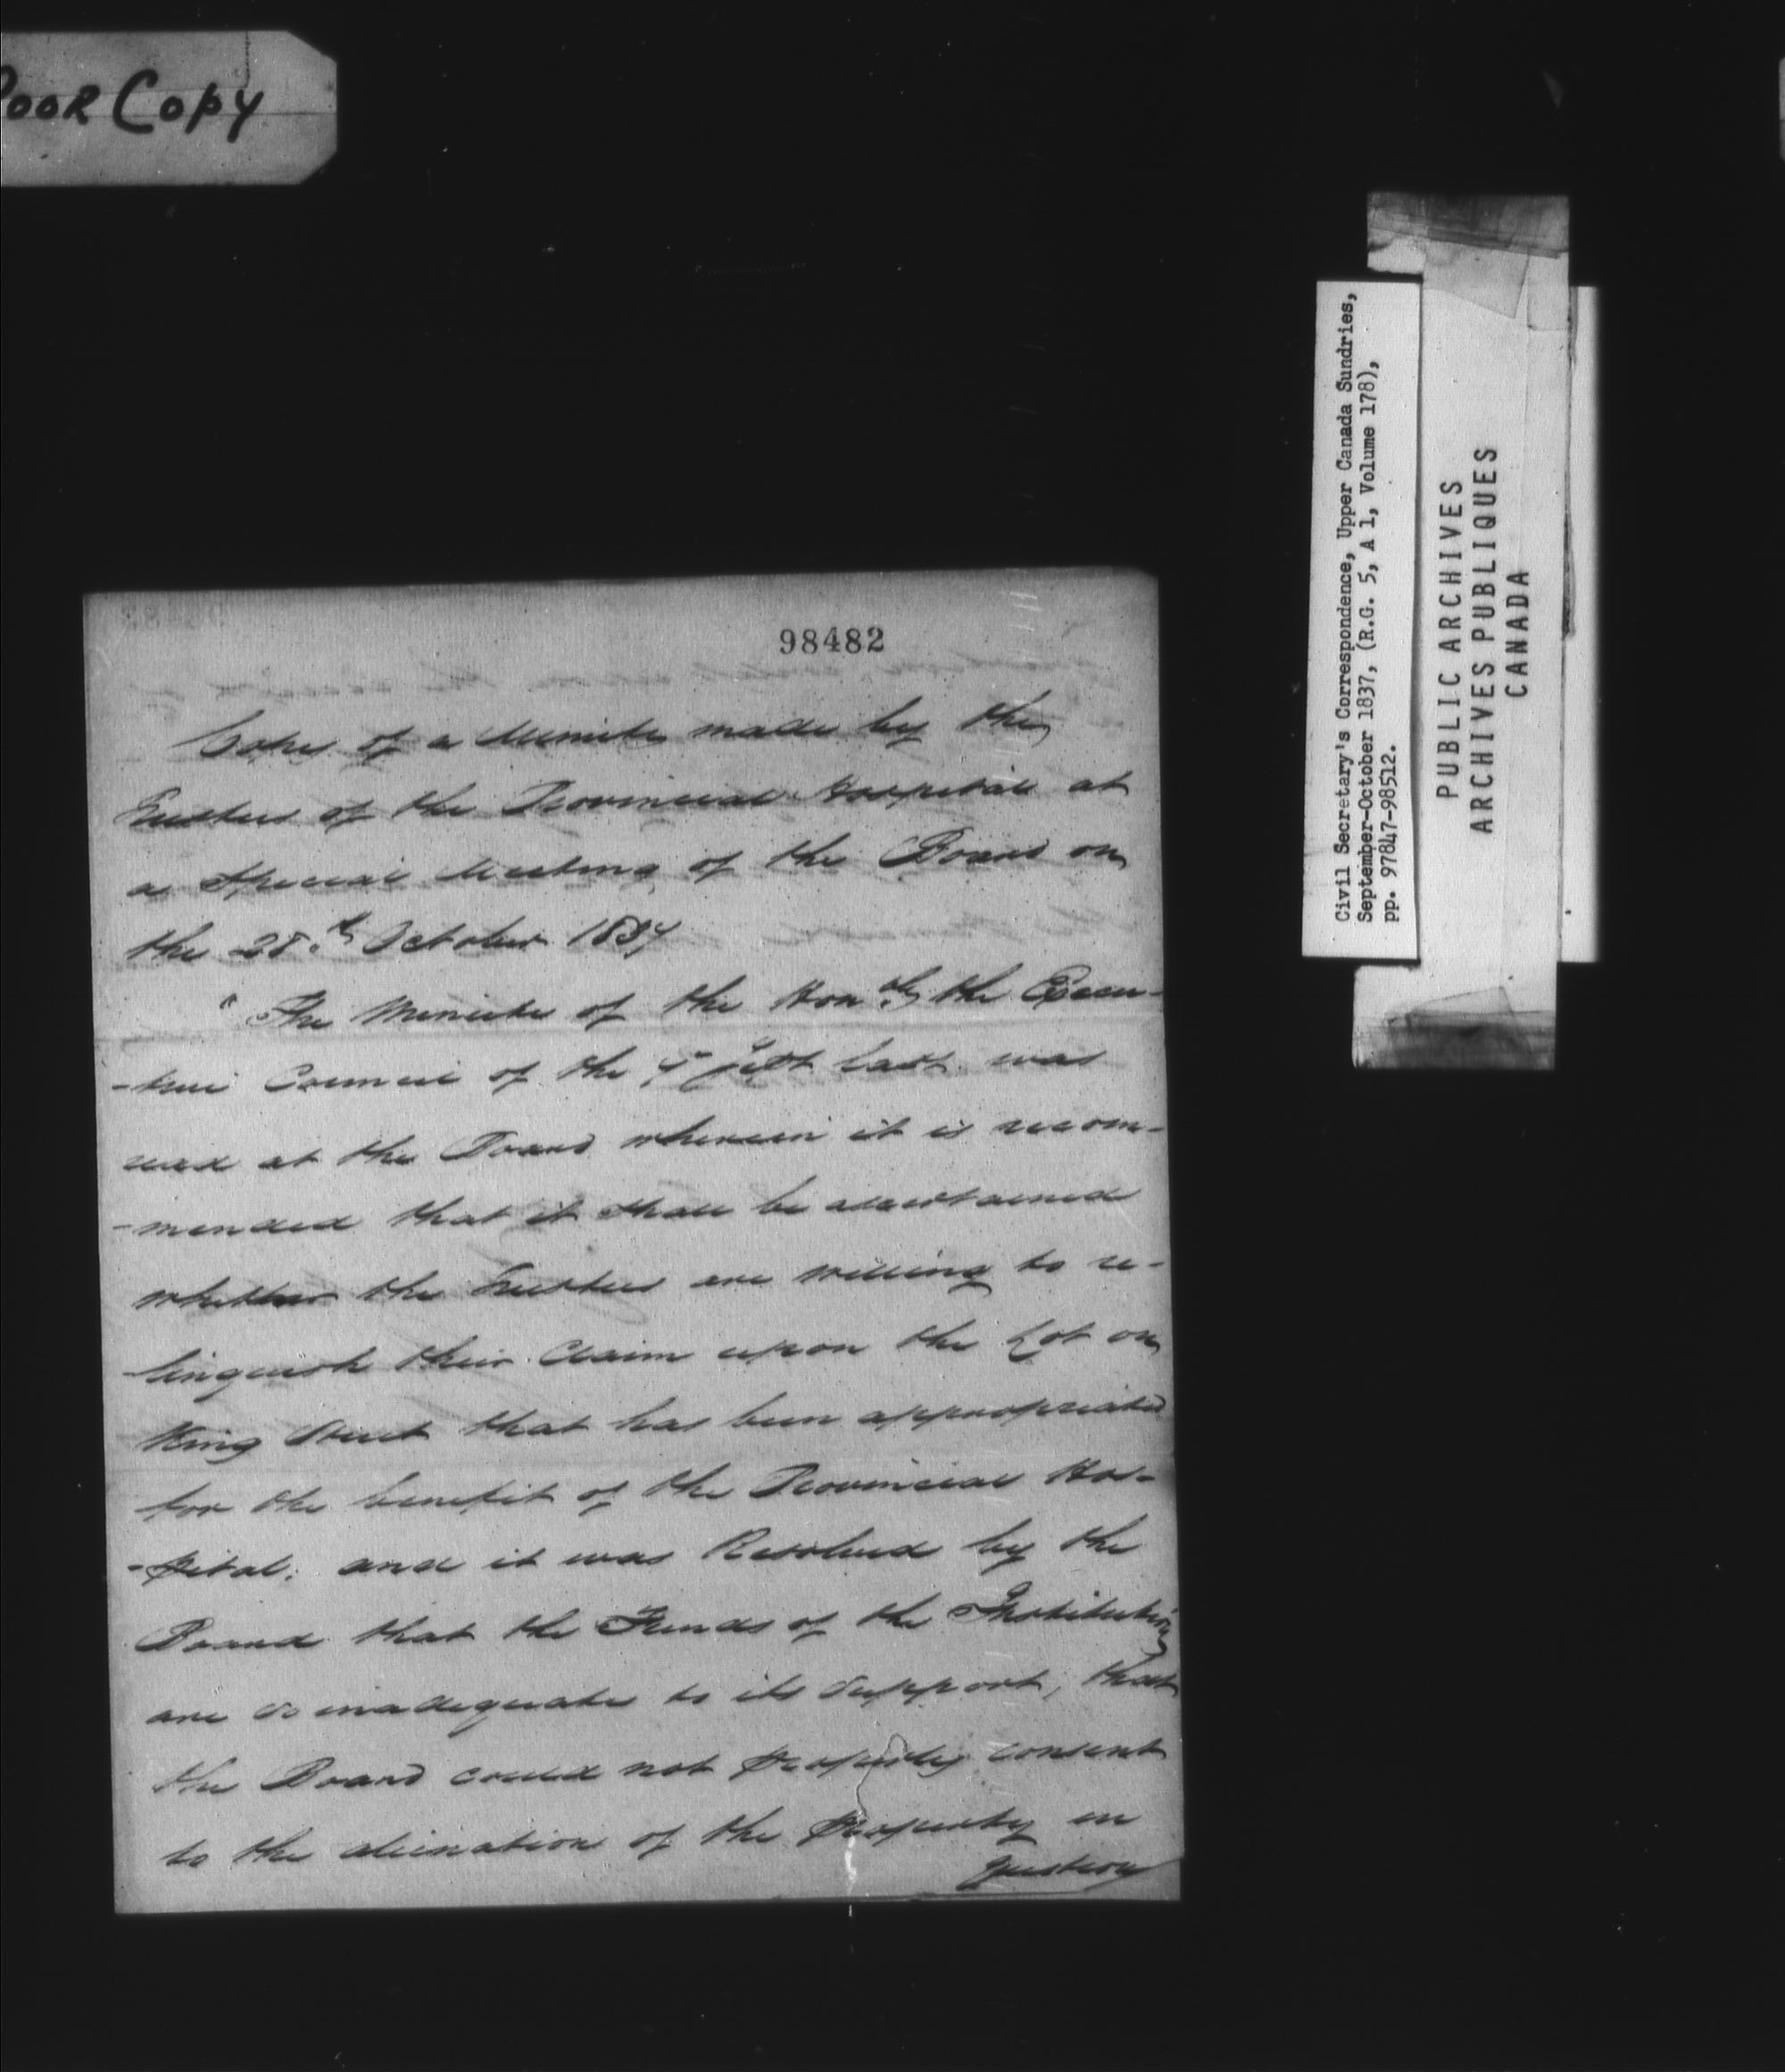 Poor Copy
98482
Copy of a Minute made by the
Trustees of the Provincial Hospital at
a Special Meeting of the Board on
the 28th October 1834
"The Minute of the Honble the Execu-
-tive Council of the last was
read at the Board wherein it is recom-
-mended that it shall be ascertained
whether the Trustees are willing to re-
-linquish their Claim upon the Lot on
King Street that has been appropriated
for the benefit of the Provincial Hos-
-pital; and it was Resolved by the
Board that the Funds of the Institution
are so inadequate to its support, that
the Board could not properly consent
to the alienation of the property in
question
Civil Secretary's Correspondence, Upper Canada Sundries,
September-October 1837, (R.G. 5, A 1, Volume 178),
pp. 97847-98512.
PUBLIC ARCHIVES
ARCHIVES PUBLIQUES
CANADA